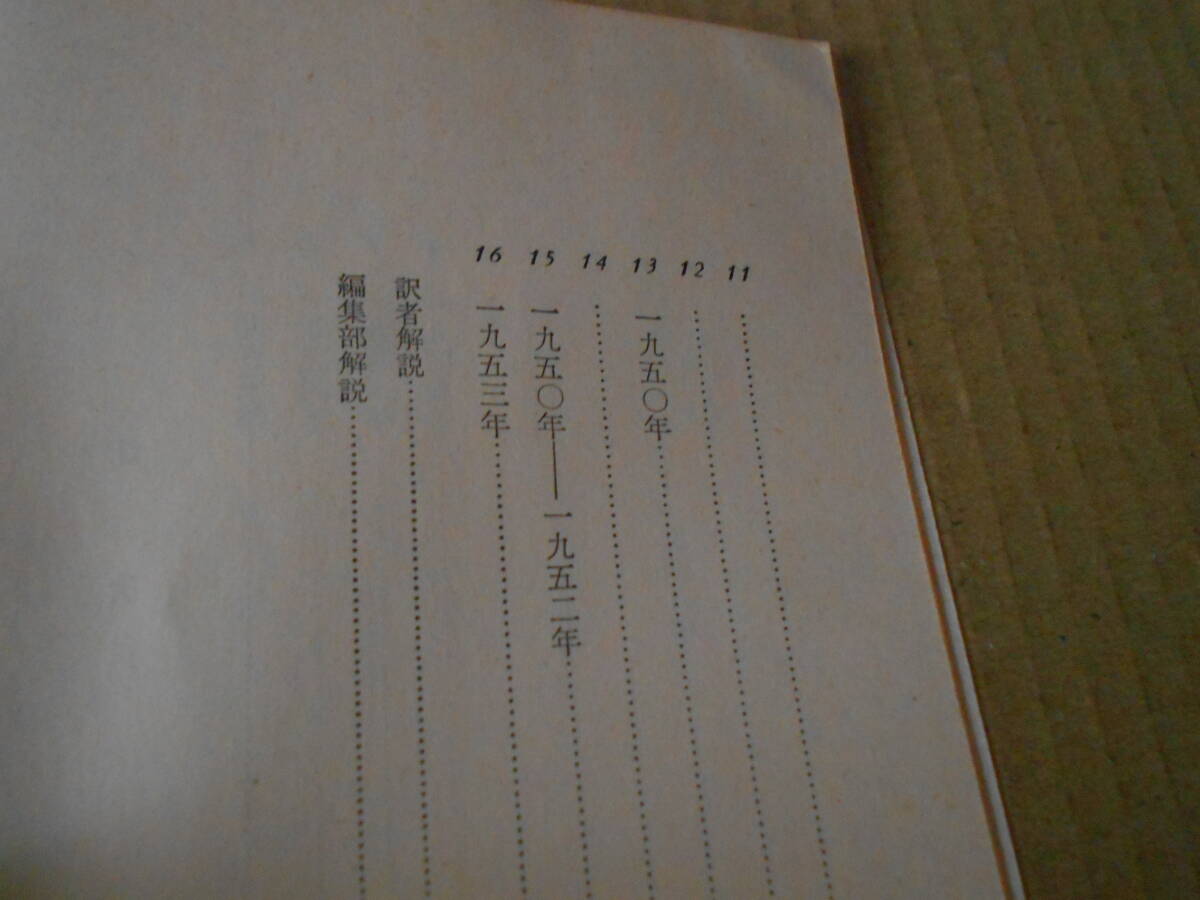 11 ……………………
12 ……………………
13 一九五〇年……………………
14 ……………………
15 一九五〇年――一九五二年……………………
16 一九五三年……………………
訳者解説……………………
編集部解説……………………